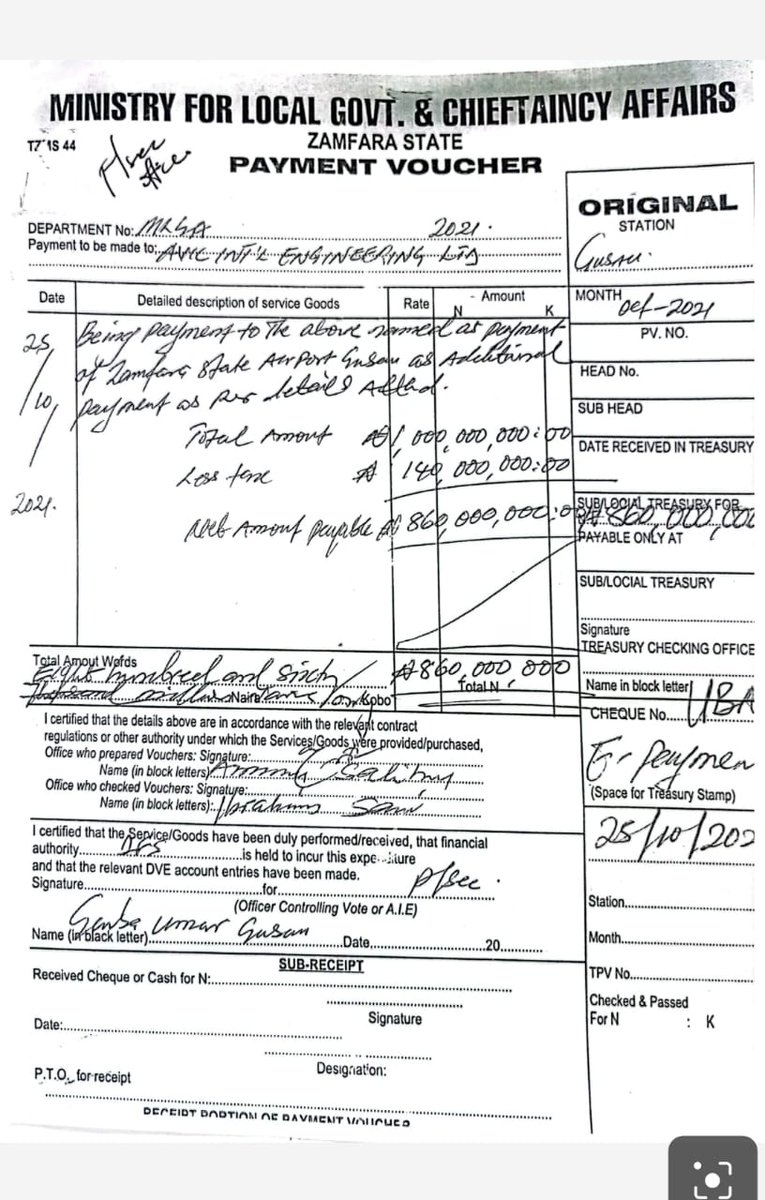 MINISTRY FOR LOCAL GOVT. & CHIEFTAINCY AFFAIRS
ZAMFARA STATE
PAYMENT VOUCHER
ORIGINAL
STATION
Gusau.
DEPARTMENT No: MLGA 2021.
Payment to be made to: AVIC INT'L ENGINEERING LTD
MONTH Oct-2021
PV. NO.
HEAD No.
SUB HEAD
DATE RECEIVED IN TREASURY
SUB/LOCIAL TREASURY FOR
₦ 860,000,000
PAYABLE ONLY AT
SUB/LOCIAL TREASURY
Signature
TREASURY CHECKING OFFICE
Name in block letter
UBA
CHEQUE No.
E-Paymen
(Space for Treasury Stamp)
25/10/202
Station
Month
TPV No.
Checked & Passed
For N : K
Date Detailed description of service Goods Rate Amount
N K
25/10/2021.
Being payment to the above named as payment
of Zamfara State Airport Gusau as Additional
payment as per details Attchd.
Total Amount ₦ 1,000,000,000:00
Less ₦ 140,000,000:00
Nett Amount payable ₦ 860,000,000:00
Total Amout Wofds
Eight hundred and sixty
Naira Kobo
₦ 860,000,000
Total N
I certified that the details above are in accordance with the relevant contract
regulations or other authority under which the Services/Goods were provided/purchased,
Office who prepared Vouchers: Signature:
Name (in block letters)
Office who checked Vouchers: Signature:
Name (in block letters): Ibrahim
I certified that the Service/Goods have been duly performed/received, that financial
authority is held to incur this expe iture
and that the relevant DVE account entries have been made.
Signature for P/Sec.
(Officer Controlling Vote or A.I.E)
Name (in black letter) Umar Gusau Date 20
SUB-RECEIPT
Received Cheque or Cash for N:
Signature
Date:
Designation:
P.T.O. for receipt
RECEIPT PORTION OF PAYMENT VOUCHER